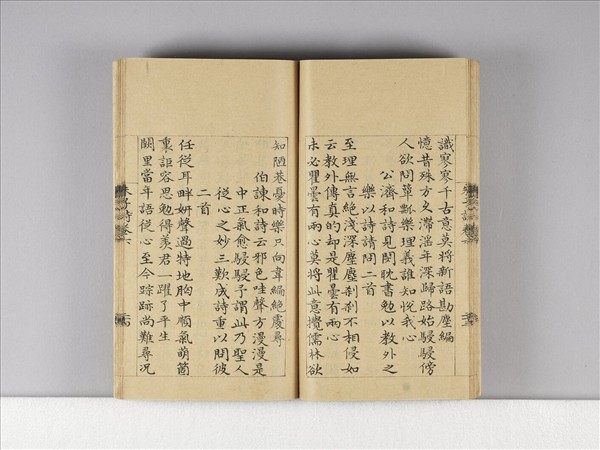 識寥寥千古意莫將新語勘塵編
憶昔殊方久滯淫年深歸路始駸駸傍
人欲問簞瓢樂理義誰知悅我心
公濟和詩見閔耽書勉以教外之
樂以詩請問二首
至理無言絕淺深塵塵刹刹不相侵如
云教外傳真的却是瞿曇有兩心
未必瞿曇有兩心莫將此意攪儒林欲
知陋巷憂時樂只向韋編絕處尋
伯諫和詩云邪色哇聲方漫漫是
中正氣愈駸駸予謂此乃聖人
從心之妙三歎成詩重以問彼
二首
任從耳畔妍聲過特地胸中順氣萌箇
裏詎容思勉得羨君一躍了平生
闕里當年語從心至今踪跡尚難尋況